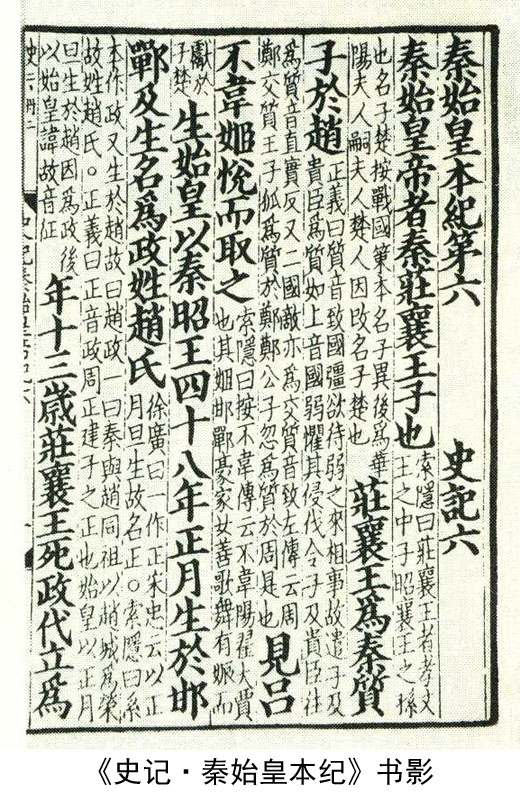 秦始皇本紀第六 史記六
秦始皇帝者秦莊襄王子也
索隱曰莊襄王者孝文
王之中子昭襄王之孫
也名子楚按戰國策本名子異後為華
陽夫人嗣夫人楚人因改名子楚也
莊襄王為秦質
子於趙
正義曰質音致國彊欲待弱之來相事故遣子及
貴臣為質如上音國弱懼其侵伐令子及貴臣往
為質音直實反又二國敵亦為交質音致左傳云周
鄭交質王子狐為質於鄭鄭公子忽為質於周是也
見呂
不韋姬悅而取之
索隱曰按不韋傳云不韋陽翟大賈
也其姬邯鄲豪家女善歌舞有娠而
獻於
子楚
生始皇以秦昭王四十八年正月生於邯
鄲及生名為政姓趙氏
徐廣曰一作正宋忠云以正
月旦生故名正○索隱曰系
本作政又生於趙故曰趙政一曰秦與趙同祖以趙城為榮
故姓趙氏○正義曰正音政周正建子之正也始皇以正月
旦生於趙因為政後
以始皇諱故音征
年十三歲莊襄王死政代立為
《史记·秦始皇本纪》书影